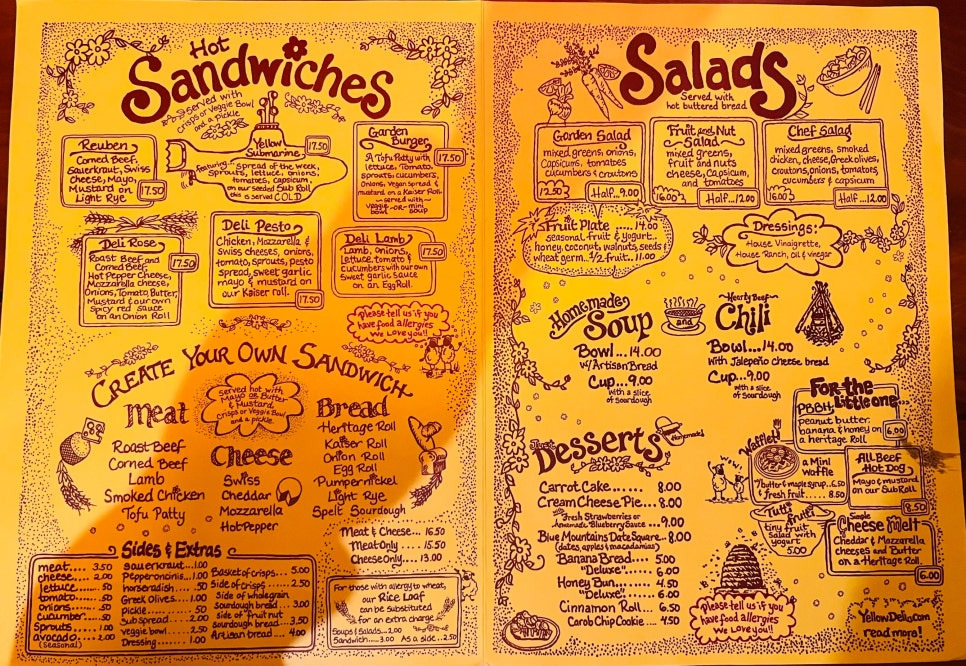 Hot
Sandwiches
Served with
Crisps or Veggie Bowl
and a pickle
Reuben
Corned Beef,
Sauerkraut, Swiss
Cheese, Mayo,
Mustard on
Light Rye
17.50
Yellow
Submarine
17.50
featuring... spread of the week,
sprouts, lettuce, onions,
tomatoes, capsicum,
on our seeded Sub Roll
this is served COLD
Garden
Burger
17.50
A Tofu Patty with
lettuce, Tomato,
sprouts, cucumbers,
Onions, Vegan spread &
mustard on a Kaiser Roll.
served with
veggie -or- mini
bowl soup
Deli Rose
Roast Beef and
Corned Beef,
Hot Pepper Cheese,
Mozzarella cheese,
Onions, Tomato, Butter,
Mustard & our own
Spicy red sauce
on an Onion Roll
17.50
Deli Pesto
Chicken, Mozzarella &
Swiss cheeses, onions,
tomato, sprouts, pesto
spread, sweet garlic
mayo & mustard on
our Kaiser roll.
17.50
Deli Lamb
Lamb, Onions,
Lettuce, tomato &
cucumbers with our own
sweet garlic sauce
on an Egg Roll.
17.50
please tell us if you
have food allergies
We Love you!!
Create Your Own Sandwich
Served hot with
Mayo or Butter
& Mustard,
Crisps or Veggie Bowl
and a pickle.
Meat
Roast Beef
Corned Beef
Lamb
Smoked Chicken
Tofu Patty
Cheese
Swiss
Cheddar
Mozzarella
Hot Pepper
Bread
Heritage Roll
Kaiser Roll
Onion Roll
Egg Roll
Pumpernickel
Light Rye
Spelt Sourdough
Meat & Cheese... 16.50
Meat Only .... 15.50
Cheese Only.... 13.00
Sides & Extras
meat..... 3.50
cheese.... 2.00
lettuce..... .50
tomato..... .50
onions..... .50
cucumber.. .50
sprouts.... 1.00
avocado.... 2.00
(seasonal)
sauerkraut...1.00
Pepperoncinis..1.00
horseradish... .50
Greek Olives...1.00
Pickle..... .50
Sub spread.... 2.00
veggie bowl.. 2.50
Dressing ..... 1.00
Basket of crisps... 5.00
Side of crisps... 2.50
Side of wholegrain
Sourdough bread... 3.00
Side of fruit nut
Sourdough bread.. 3.50
Artisan bread.... 4.00
For those with allergy to wheat,
our Rice Loaf
can be substituted
for an extra charge
Soups & Salads...2.00
Sandwich.......3.00 As a side...2.50
Salads
Served with
hot buttered bread
Garden Salad
mixed greens, onions,
Capsicums, tomatoes
cucumbers & croutons
Half...9.00
Fruit and Nut
Salad
mixed greens,
fruit and nuts
cheese, Capsicum,
and tomatoes
16.00
Half...12.00
Chef Salad
mixed greens, smoked
chicken, cheese, Greek olives,
croutons, onions, tomatoes,
cucumbers & capsicum
16.00
Half...12.00
Fruit Plate .....14.00
seasonal fruit & yogurt..
honey, coconut, walnuts, seeds &
wheat germ... 1/2 fruit...11.00
Dressings:
House Vinaigrette,
House Ranch, Oil & Vinegar
Homemade
Soup
Bowl...14.00
w/ Artisan Bread
Cup...9.00
with a slice
of sourdough
and
Hearty Beef
Chili
Bowl...14.00
With Jalapeño Cheese bread
Cup...9.00
with a slice
of Sourdough
Desserts
Homemade!
Carrot Cake...... 8.00
Cream Cheese Pie.... 8.00
with Fresh Strawberries or
Homemade Blueberry Sauce ... 9.00
Blue Mountains Date Square... 8.00
(dates, apples & macadamias)
Banana Bread.... 5.00
"Deluxe"...... 6.00
Honey Bun..... 4.50
"Deluxe"..... 6.00
Cinnamon Roll... 6.50
Carob Chip Cookie .... 4.50
For the
little one...
PBBH:
peanut butter,
banana & honey on
a heritage Roll
6.00
Wafflet!
a Mini
Waffle
w/ butter & maple syrup...6.50
& fresh fruit....... 8.50
WOW!
All Beef
Hot Dog
Mayo & mustard
on our Sub Roll
8.50
Tutti fruiti
tiny fruit
salad with
yogurt
5.00
Simple
Cheese Melt
Cheddar & Mozzarella
cheeses and Butter
on a Heritage Roll.
6.00
please tell us if you
have food allergies
We Love you!!
YellowDeli.com
read more!